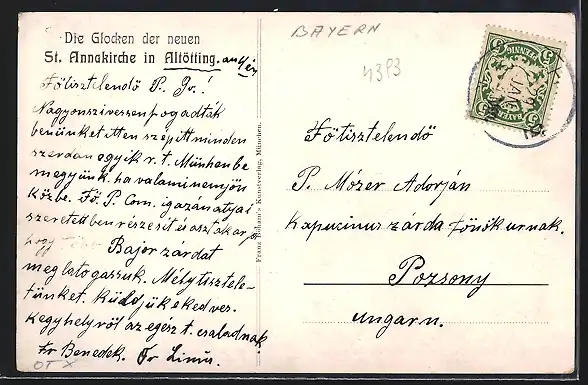 Die Glocken der neuen
St. Annakirche in Altötting.
Főtisztelendő P. Gv.!
Nagyon szivessen fogadták
benünket itten szép itt minden
szerdan egyik r. t. Münhenbe
megyünk. ha valami nem jön
közbe. Fő. P. Com. igazán atyai
szeretettben részesit és aszt akarja
hogy több Bajor zárdat
meglatogassuk. Mély tisztele-
tünket. küldjük e kedves
kegyhelyről az egész t. családnak
Fr Benedek. Fr Linus.
OTX
Franz Hohann's Kunstverlag, München.
BAYERN
4393
5 PFENNIG 5
BAYERN
JAN
Főtisztelendő
P. Mózer Adorján
Kapucinus zárda főnök urnak.
Pozsony
Ungarn.